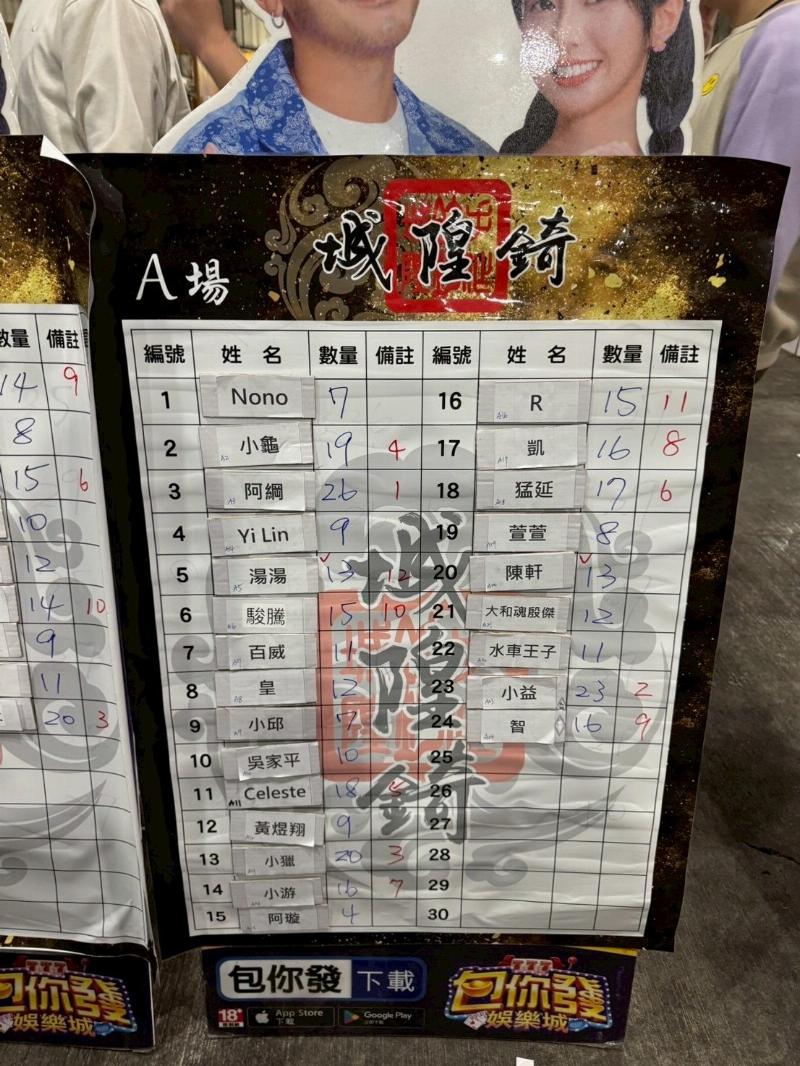 城隍錡
A場
編號 姓名 數量 備註 編號 姓名 數量 備註
1 Nono 7 16 R 15 11
2 小龜 19 4 17 凱 16 8
3 阿綱 26 1 18 猛延 17 6
4 Yi Lin 9 19 萱萱 8
5 湯湯 13 12 20 陳軒 13
6 駿騰 15 10 21 大和魂殷傑 12
7 百威 11 22 水車王子 11
8 皇 12 23 小益 23 2
9 小邱 7 24 智 16 9
10 吳家平 10 25
11 Celeste 18 5 26
12 黃煜翔 9 27
13 小獵 20 3 28
14 小游 16 7 29
15 阿璇 4 30
城隍錡
數量 備註
14 9
8
15 6
10
12
14 10
9
11
20 3
包你發 下載
18+ App Store 下載 Google Play
777
包你發
娛樂城
777
包你發
娛樂城